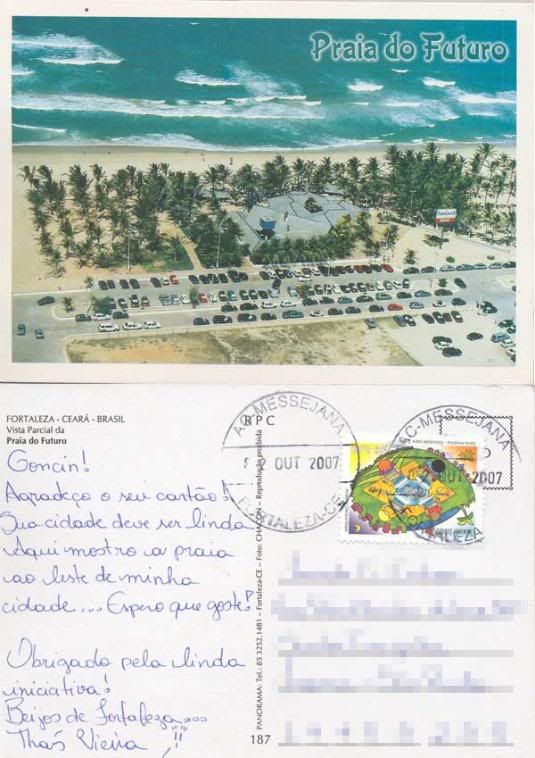 Praia do Futuro
FORTALEZA - CEARÁ - BRASIL
Vista Parcial da
Praia do Futuro
Goncin!
Agradeço o seu cartão!
Sua cidade deve ser linda
Aqui mostro a praia
ao leste de minha
cidade... Espero que goste!
Obrigada pela linda
iniciativa!
Beijos de Fortaleza...
Thaís Vieira !!
PANORAMA: Tel.: 85 3252.1481 - Fortaleza-CE - Foto: CHACON - Reprodução proibida
187
RPC
AC-MESSEJANA
OUT 2007
FORTALEZA-CE
AC-MESSEJANA
OUT 2007
FORTALEZA